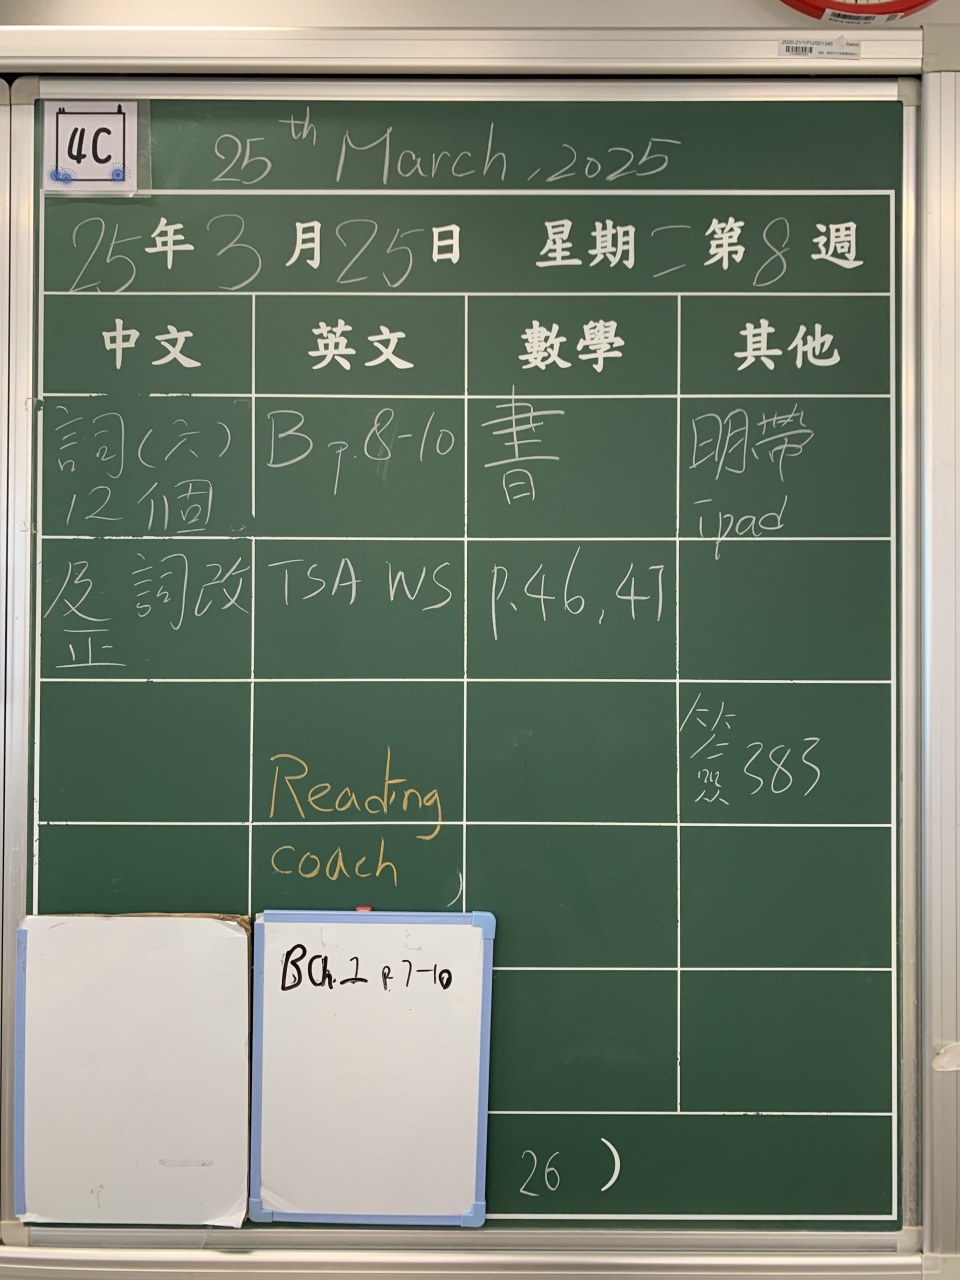 4C
25th March, 2025
25年3月25日 星期二 第8週
中文 英文 數學 其他
詞(六) B p.8-10 書 明帶
12個 ipad
及 詞改 TSA WS p.46,47
正
Reading 簽383
coach
B Ch.2 p.7-10
26 )